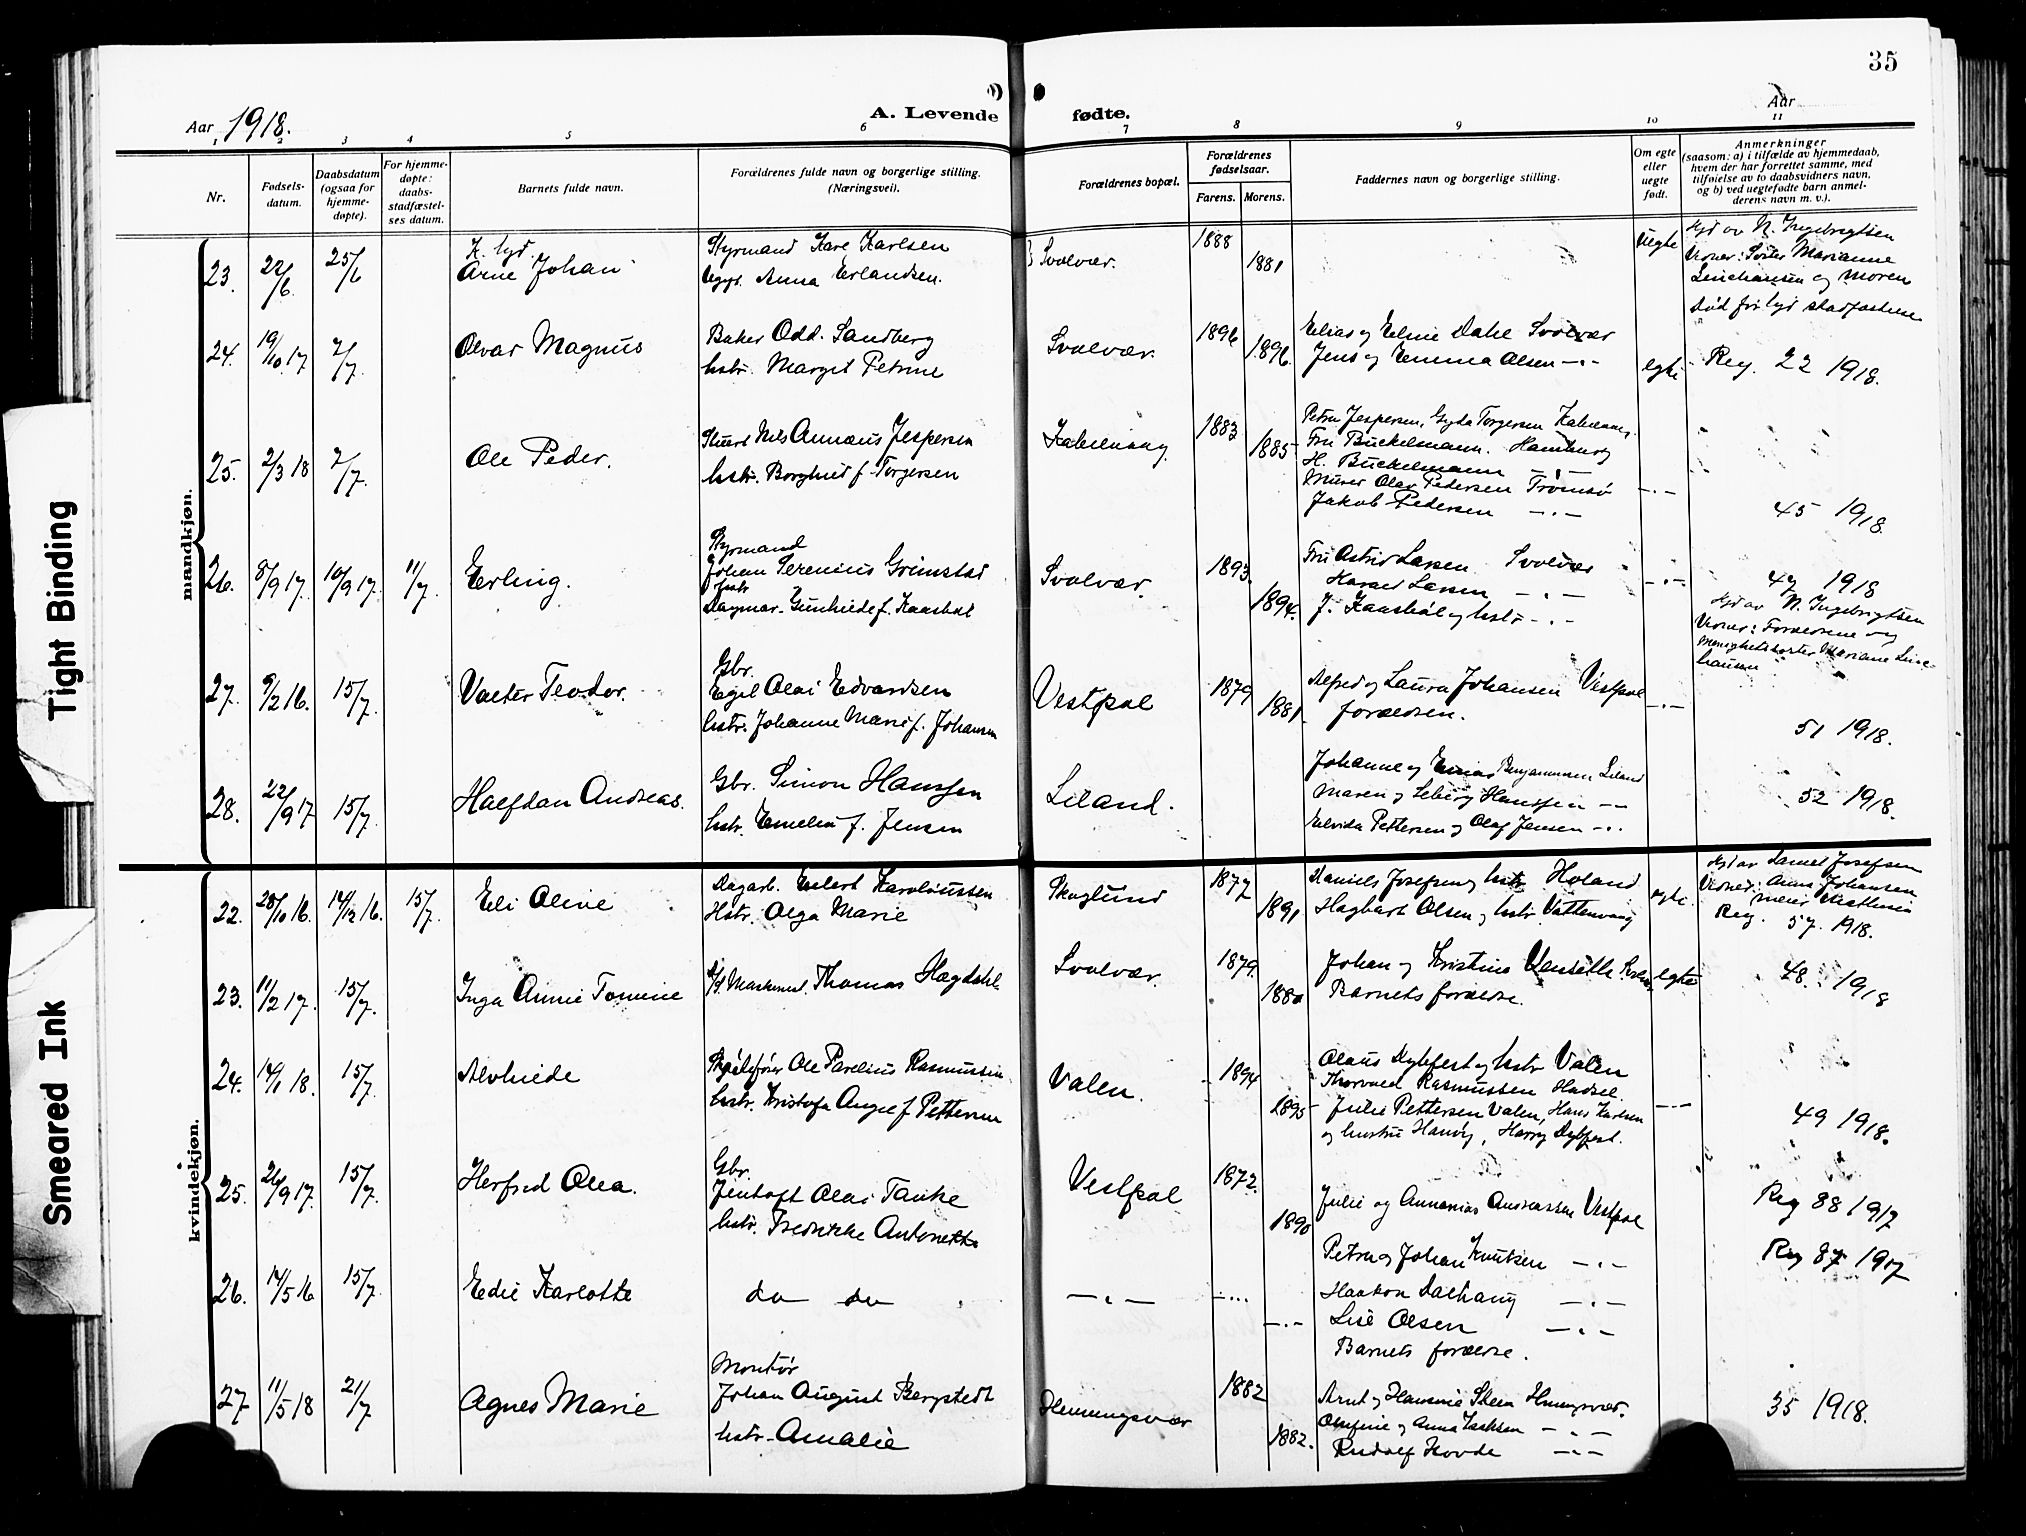 35
Aar 1918.
A. Levende fødte.
Aar
1 2 3 4 5 6 7 8 9 10 11
Nr.
Fødsels-
datum.
Daabsdatum
(ogsaa for
hjemme-
døpte).
For hjemme-
døpte:
daabs-
stadfæstel-
ses datum.
Barnets fulde navn.
Forældrenes fulde navn og borgerlige stilling.
(Næringsvei).
Forældrenes bopæl.
Forældrenes
fødselsaar.
Farens. Morens.
Faddernes navn og borgerlige stilling.
Om egte
eller
uegte
født.
Anmerkninger
(saasom: a) i tilfælde av hjemmedaab,
hvem der har forrettet samme, med
tilføielse av to daabsvidners navn,
og b) ved uegtefødte barn anmel-
derens navn m. v.).
mandkjøn.
23. 22/6 25/6
Arne Johan
Styrmand Kare Karlsen
Anna Erlandsen.
Svolvær.
1888
1881
Uegte
Hjd av N. Ingebrigtsen
Vidner: Søster Marianne
og Moren
24. 19/10 17 7/7
Alvar Magnus
Baker Odd. Sandberg
hstr. Margit Petrine
Svolvær.
1896
1896.
Elias og Eline Dahl Svolvær
Jens og Emma Olsen -"-
egte
Reg. 22 1918.
25. 2/3 18 7/7.
Ole Peder.
Stuert Nils Annæus Jespersen
hstr. Borghild f. Torgersen
Kabelvaag
1883
1885
Petra Jespersen, Gyda Torgersen Kabelvaag.
Fru Buckelmann. Hamburg
H. Buckelmann -"-
Murer Olav Pedersen Tromsø
Jakob Pedersen -"-
-"-
45 1918.
26. 8/9 17. 10/9 17. 11/7.
Erling.
Styrmand
Johan Serenius Grimstad
hstr
Dagmar Gunhilde f. Kaasbøl
Svolvær.
1893.
1894.
Fru Astrid Larsen Svolvær
Harald Larsen -"-
J. Kaasbøl og hstr -"-
-"-
47 1918
Hjd av N. Ingebrigtsen
Vidner: Forældrene og
27. 9/2 16. 15/7.
Valter Teodor.
Gbr.
Egil Olai Edvardsen
hstr. Johanne Marie f. Johansen
Vestpol
1879
1881.
Alfred og Laura Johansen Vestpol
forældren.
-"-
51 1918.
28. 22/9 17 15/7.
Halfdan Andreas.
Gbr. Simon Hanssen
hstr. Emelie f. Jensen
Liland.
Johanne og Benjaminsen Liland
Maren og Hanssen -"-
Elvida Pettersen og Olaf Jensen -"-
52 1918.
kvindekjøn.
22. 28/10 16. 14/12 16. 15/7.
Eli Oline
Dagarb. Eilert Karoliussen
Hstr. Olga Marie
Skoglund
1877
1891
Daniels Josefsen og hstr Holand
Hagbart Olsen og hstr. Vattervaag
egte.
Hjd av Daniel Josefsen
Vidner: Anna Johansen
Reg. 57. 1918.
23. 11/2 17. 15/7.
Inga Annie Tomine
Maskinist. Thomas Hagdahl
Svolvær.
1879.
1880
Johan og Kristina
Barnets forældre.
egte
48. 1918
24. 14/1 18. 15/7.
Alvhilde
Ole Parelius Rasmussen
hstr. Kristofa Angel f Pettersen
Valen.
1894
1895
Olaus Dybfest og hstr Valen
Thorvald Rasmussen Hadsel.
Julie Pettersen Valen, Hans Karlsen
og hustru Hanøy, Harry Dybfest.
-"-
49 1918.
25. 26/9 17. 15/7.
Herfrid Olea.
Gbr.
Jentoft Olai Tanke
hstr. Fredrikke Antonette
Vestpol
1872.
1890
Julie og Annanias Andreassen Vestpol
Petra og Johan Knutsen -"-
Reg 88 1917
26. 14/5 16 15/7.
Edil Karlotte
do do
-"-
-"-
-"-
Haakon Dalhaug -"-
Lise Olsen -"-
Barnets forældre.
Reg 87 1917
27 11/5 18 21/7
Agnes Marie
Montør
Johan August Bergstedt
hstr. Amalie
Henningsvær
1882
1882.
Arnt og Hansine Steen Henningsvær.
Olufine og Anna Isaksen -"-
Rudolf Hovde -"-
35 1918.
Tight Binding
Smeared Ink